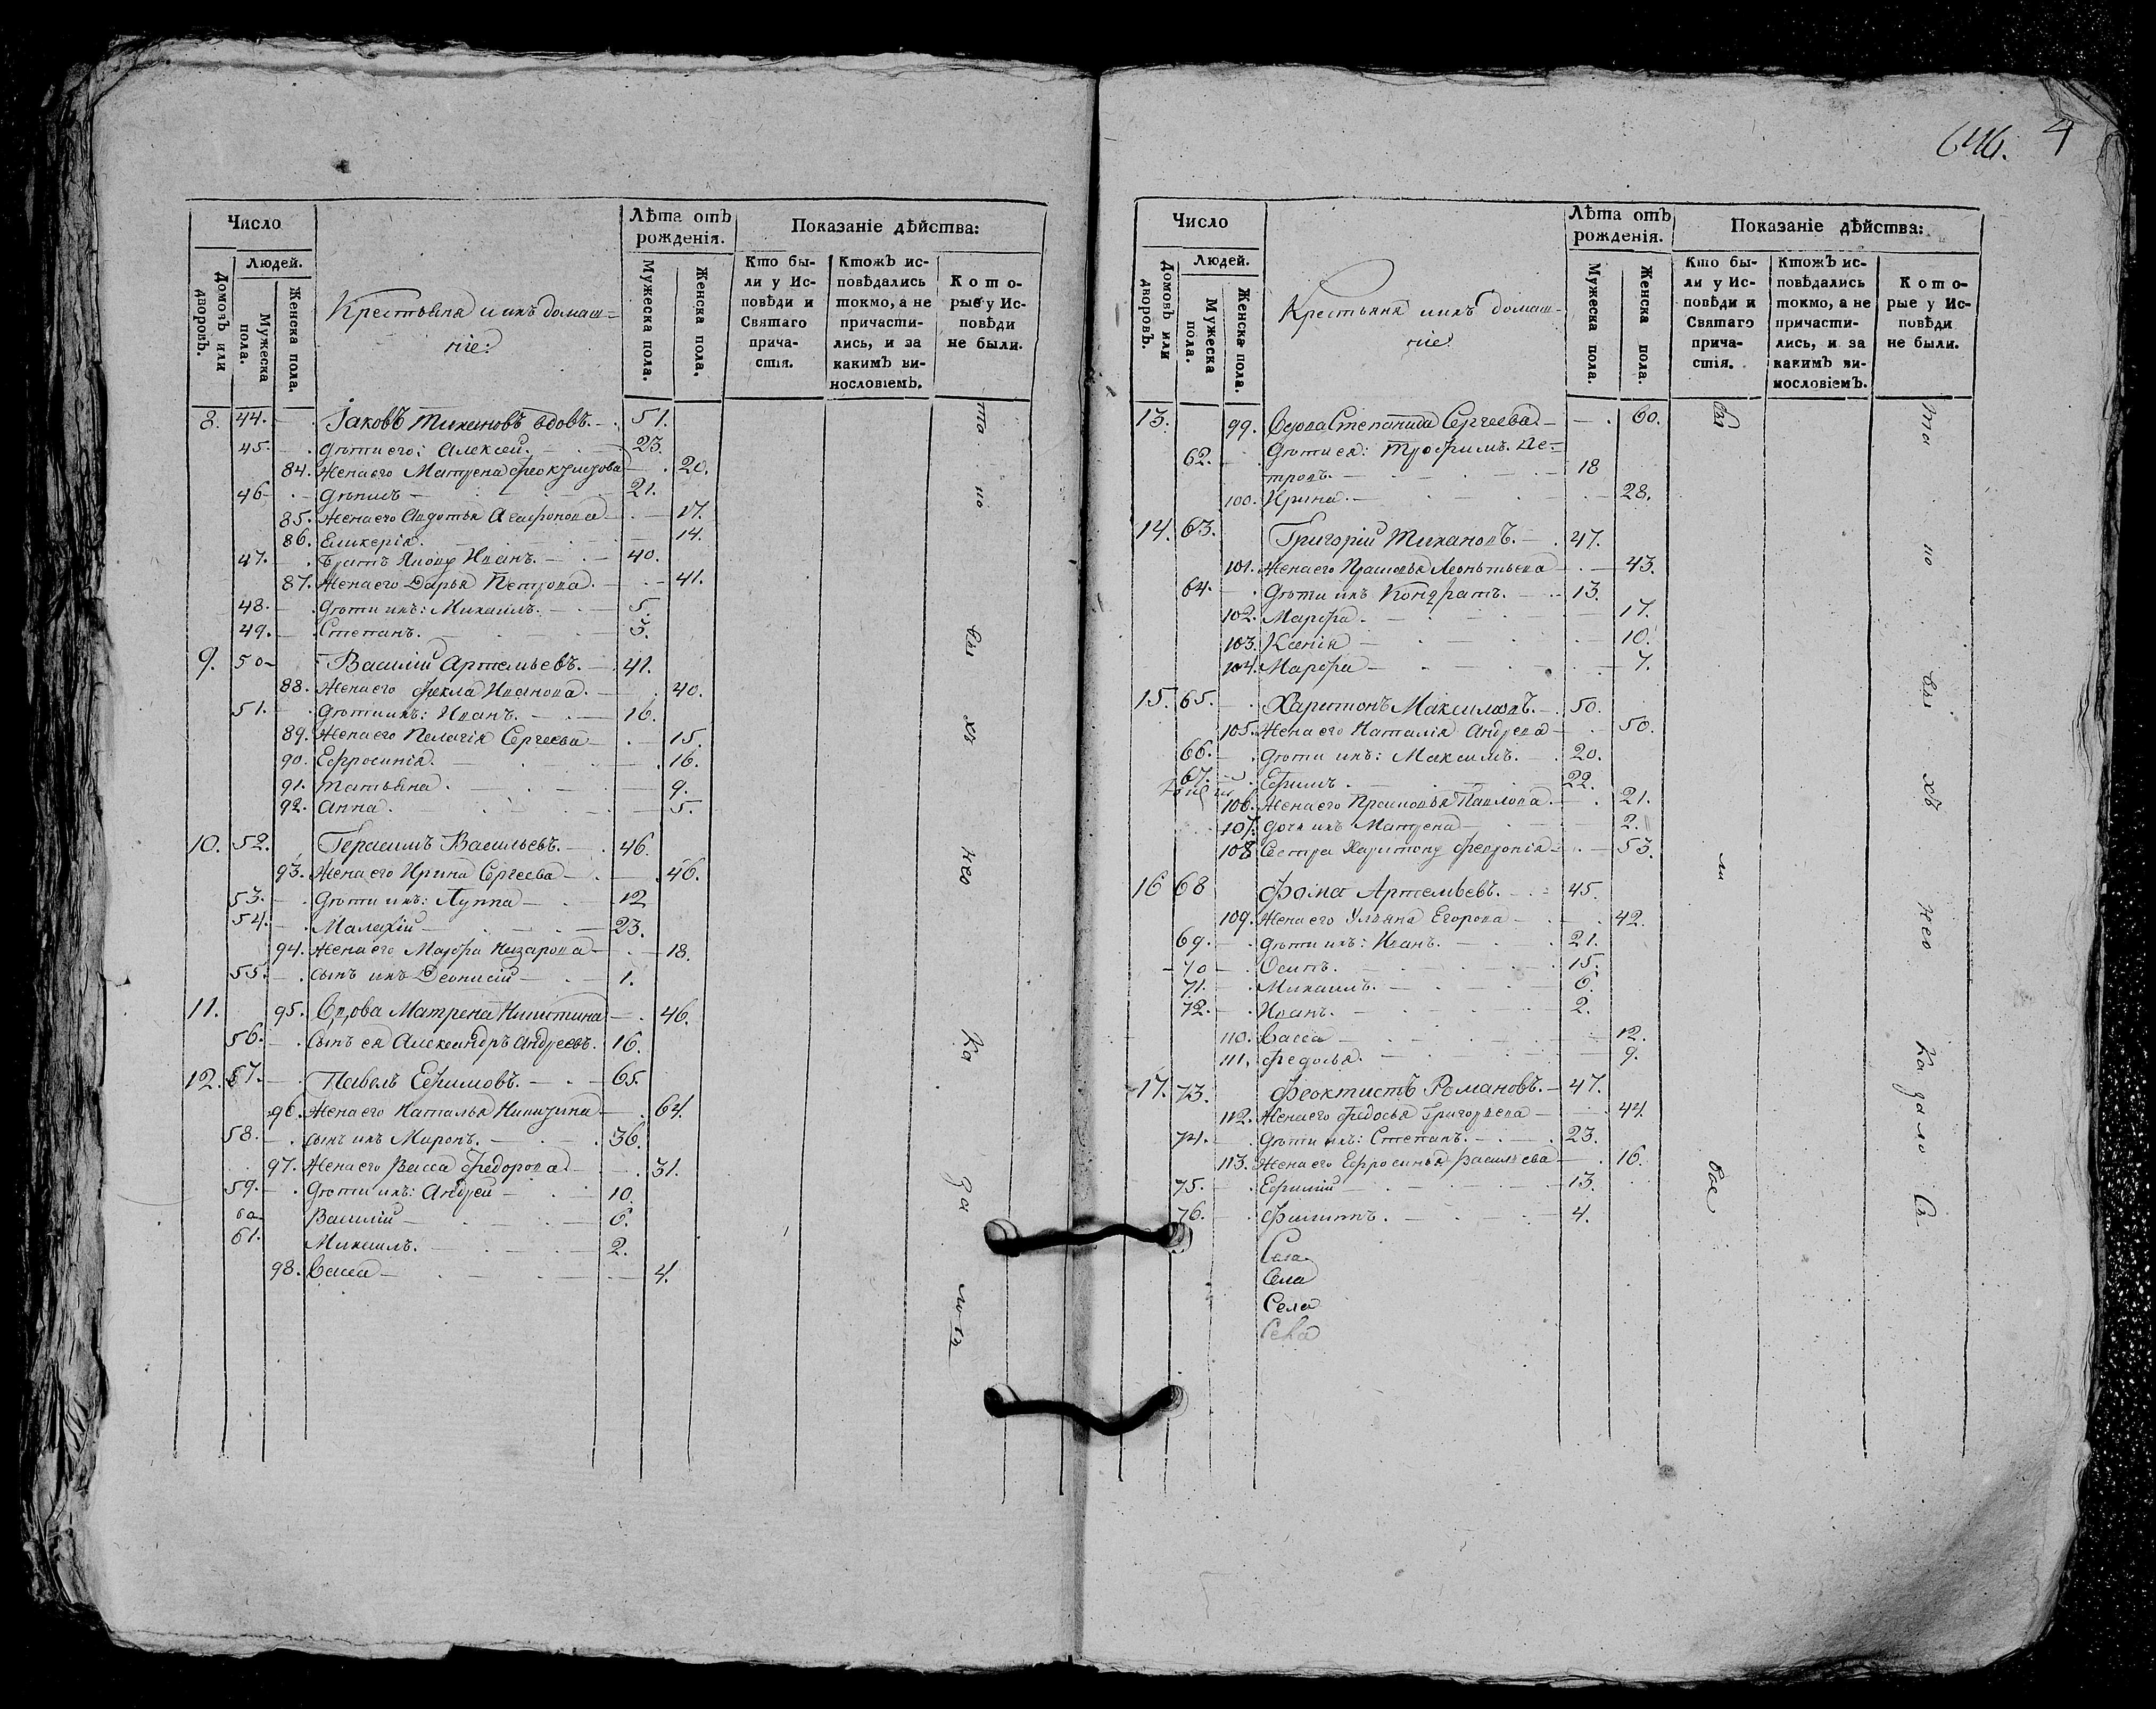 646. 4
Число
Лѣта отъ рожденія.
Показаніе дѣйства:
Домовъ или дворовъ.
Людей.
Мужеска пола.
Женска пола.
Крестьяна и ихъ домаш=
ніе:
Мужеска пола.
Женска пола.
Кто бы-
ли у Ис-
повѣди и
Святаго
прича-
стія.
Ктожъ ис-
повѣдались
токмо, а не
причасти-
лись, и за
какимъ ви-
нословіемъ.
Кото-
рые у Ис-
повѣди
не были.
8. 44. Іаковъ Тихановъ вдовъ. 51.
45. Дѣти его: Алексей. 23.
84. Жена его Матрена 20.
46 21.
85. Жена его Авдотья Агафонова 17.
86. Гликерія. 14.
47. Братъ Якову Иванъ. 40.
87. Жена его Дарья Петрова. 41.
48. Дѣти ихъ: Михаилъ. 5.
49. Степанъ. 3.
9. 50 Василій Артемьевъ. 41.
88. Жена его Фекла Иванова. 40.
51. Дѣти ихъ: Иванъ. 16.
89. Жена его Пелагія Сергеева 15.
90. Ефросинія. 16.
91. Татьяна. 9.
92. Анна. 5.
10. 52. Герасимъ Васильевъ. 46.
93. Жена его Ирина Сергеева 46.
53. Дѣти ихъ: Луппа 12
54. Малахій 23.
94. Жена его Марфа Назарова 18.
55. Сынъ ихъ Деонисій 1.
11. 95. Вдова Матрена Никитина 46.
56. Сынъ ея Александръ Андреевъ. 16.
12. 57. Павелъ Ефимовъ. 65.
96. Жена его Наталья Никитина 64.
58. Сынъ ихъ Миронъ. 36.
97. Жена его Васса Федорова 31.
59. Дѣти ихъ: Андрей 10.
60 Василій 6.
61. Михаилъ. 2.
98. Васса 4.
Число
Лѣта отъ рожденія.
Показаніе дѣйства:
Домовъ или дворовъ.
Людей.
Мужеска пола.
Женска пола.
Крестьяна ихъ домаш-
ніе:
Мужеска пола.
Женска пола.
Кто бы-
ли у Ис-
повѣди и
Святаго
прича-
стія.
Ктожъ ис-
повѣдались
токмо, а не
причасти-
лись, и за
какимъ ви-
нословіемъ.
Кото-
рые у Ис-
повѣди
не были.
13. 99. Вдова Степанида Сергеева 60.
62. Дѣти ея: Трофимъ Пе-
тровъ. 18
100. Ирина. 28.
14. 63. Григорій Тихановъ. 47.
101. Жена его Прасковья Леонтьева 43.
64. Дѣти ихъ Кондратъ. 13.
102. Марфа. 17.
103. Ксенія 10.
104. Марфа 7.
15. 65. Харитонъ Максимовъ. 50.
105. Жена его Наталія Андреева 50.
66. Дѣти ихъ: Максимъ. 20.
67. Ефимъ. 22.
106. Жена его Прасковья Павлова. 21.
107. Дочь ихъ Матрена 2.
108 Сестра Харитону Февронія 53.
16 68 Фома Артемьевъ. 45.
109. Жена его Ульяна Егорова 42.
69. Дѣти ихъ: Иванъ. 21.
70 Осипъ. 15.
71. Михаилъ. 6.
72. Иванъ. 2.
110. Васса 12.
111. Федосья. 9.
17. 73. Феоктистъ Романовъ. 47.
112. Жена его Федосья Григорьева 44.
74. Дѣти ихъ: Степанъ. 23.
113. Жена его Ефросинья Васильева 16.
75. Ефимій 13.
76. Филиппъ. 4.
Села
Села
Села
Села